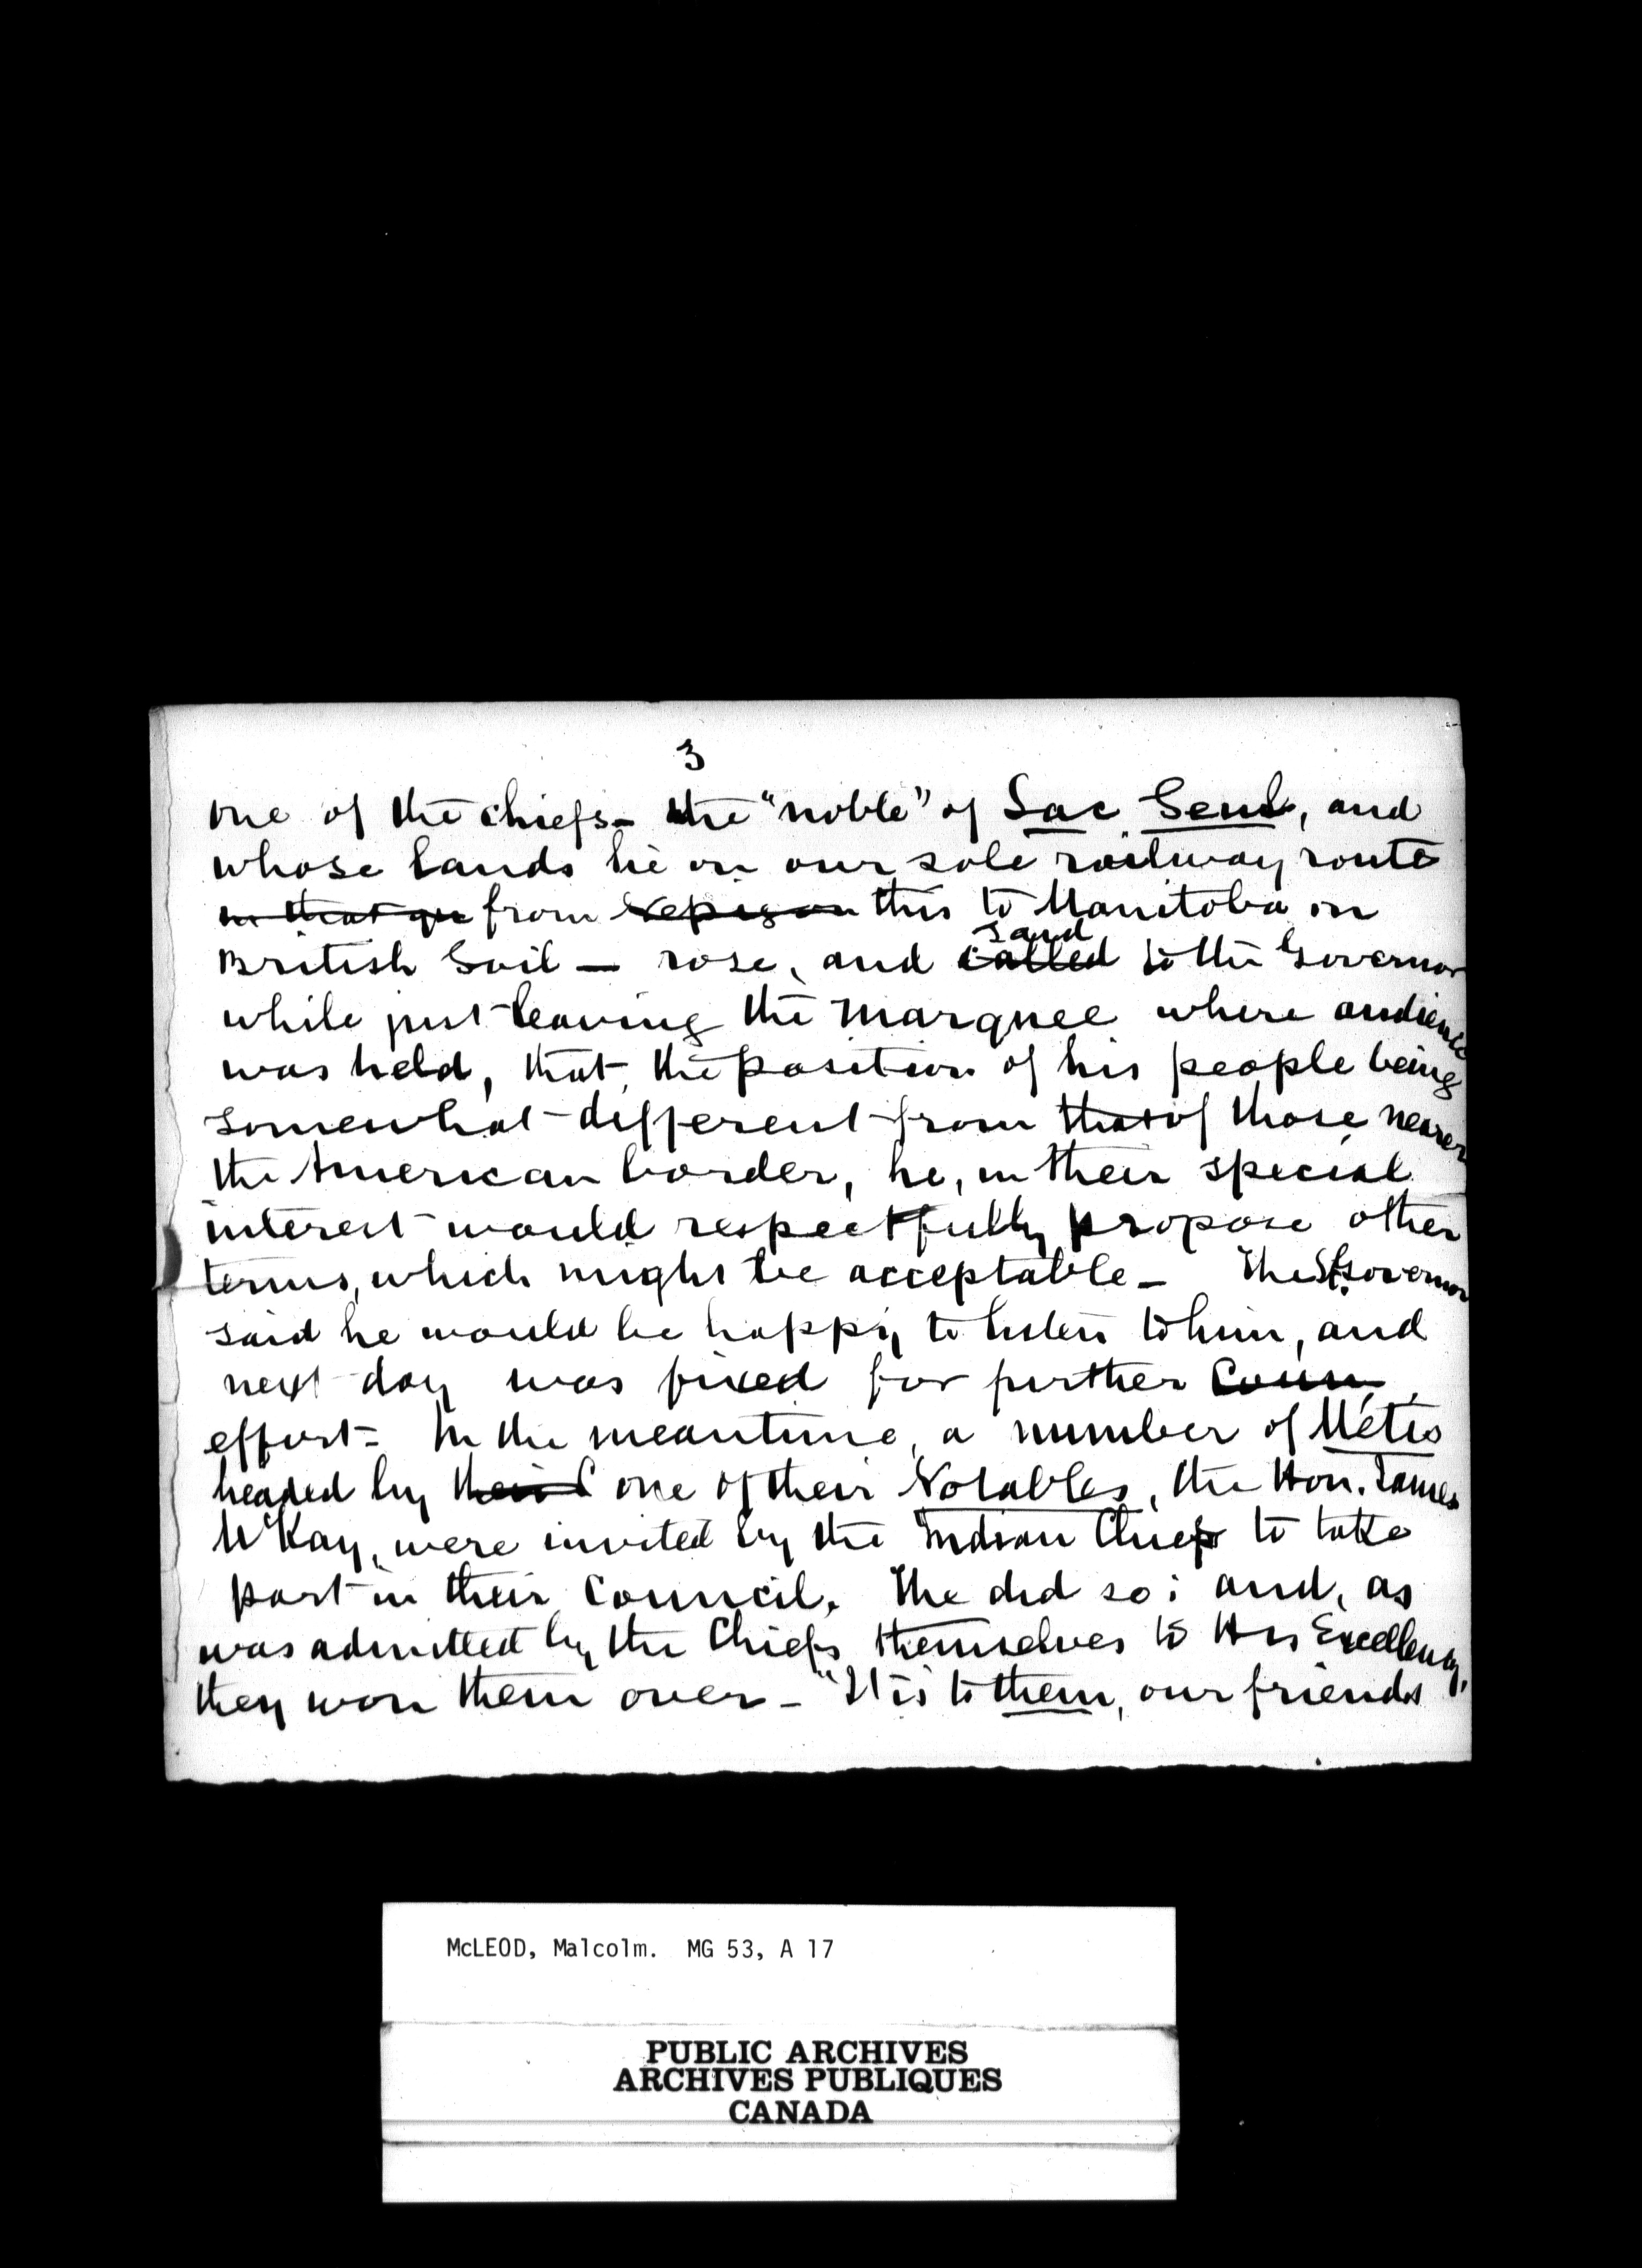 3
one of the chiefs – the "noble" of Lac Seul, and
whose lands lie on our sole railway route
in that from Nepigon this to Manitoba on
British Soil — rose, and called said to the Governor
while just leaving the marquee where audience
was held, that, the position of his people being
somewhat different from that of those nearer
the American border, he, in their special
interest would respectfully propose other
terms, which might be acceptable – The Governor
said he would be happy to listen to him, and
next day was fixed for further Coun
effort – In the meantime, a number of Métis
headed by their one of their Notables, the Hon. James
McKay, were invited by the Indian Chiefs to take
part in their Council. The did so; and, as
was admitted by the Chiefs themselves to His Excellency,
they won them over – "It is to them, our friends
McLEOD, Malcolm. MG 53, A 17
PUBLIC ARCHIVES
ARCHIVES PUBLIQUES
CANADA